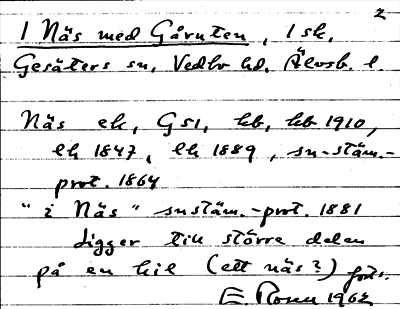 2
1 Näs med Gåruten, 1 sk.
Gesäters sn, Vedbo hd, Älvsb. l.
Näs ek, GS1, kb, kb 1910,
lk 1847, lk 1889, sn-stäm.-
prot. 1864
"i Näs" snstäm.-prot. 1881
Ligger till större delen
på en kil (ett näs?) forts.
E. Rosen 1962